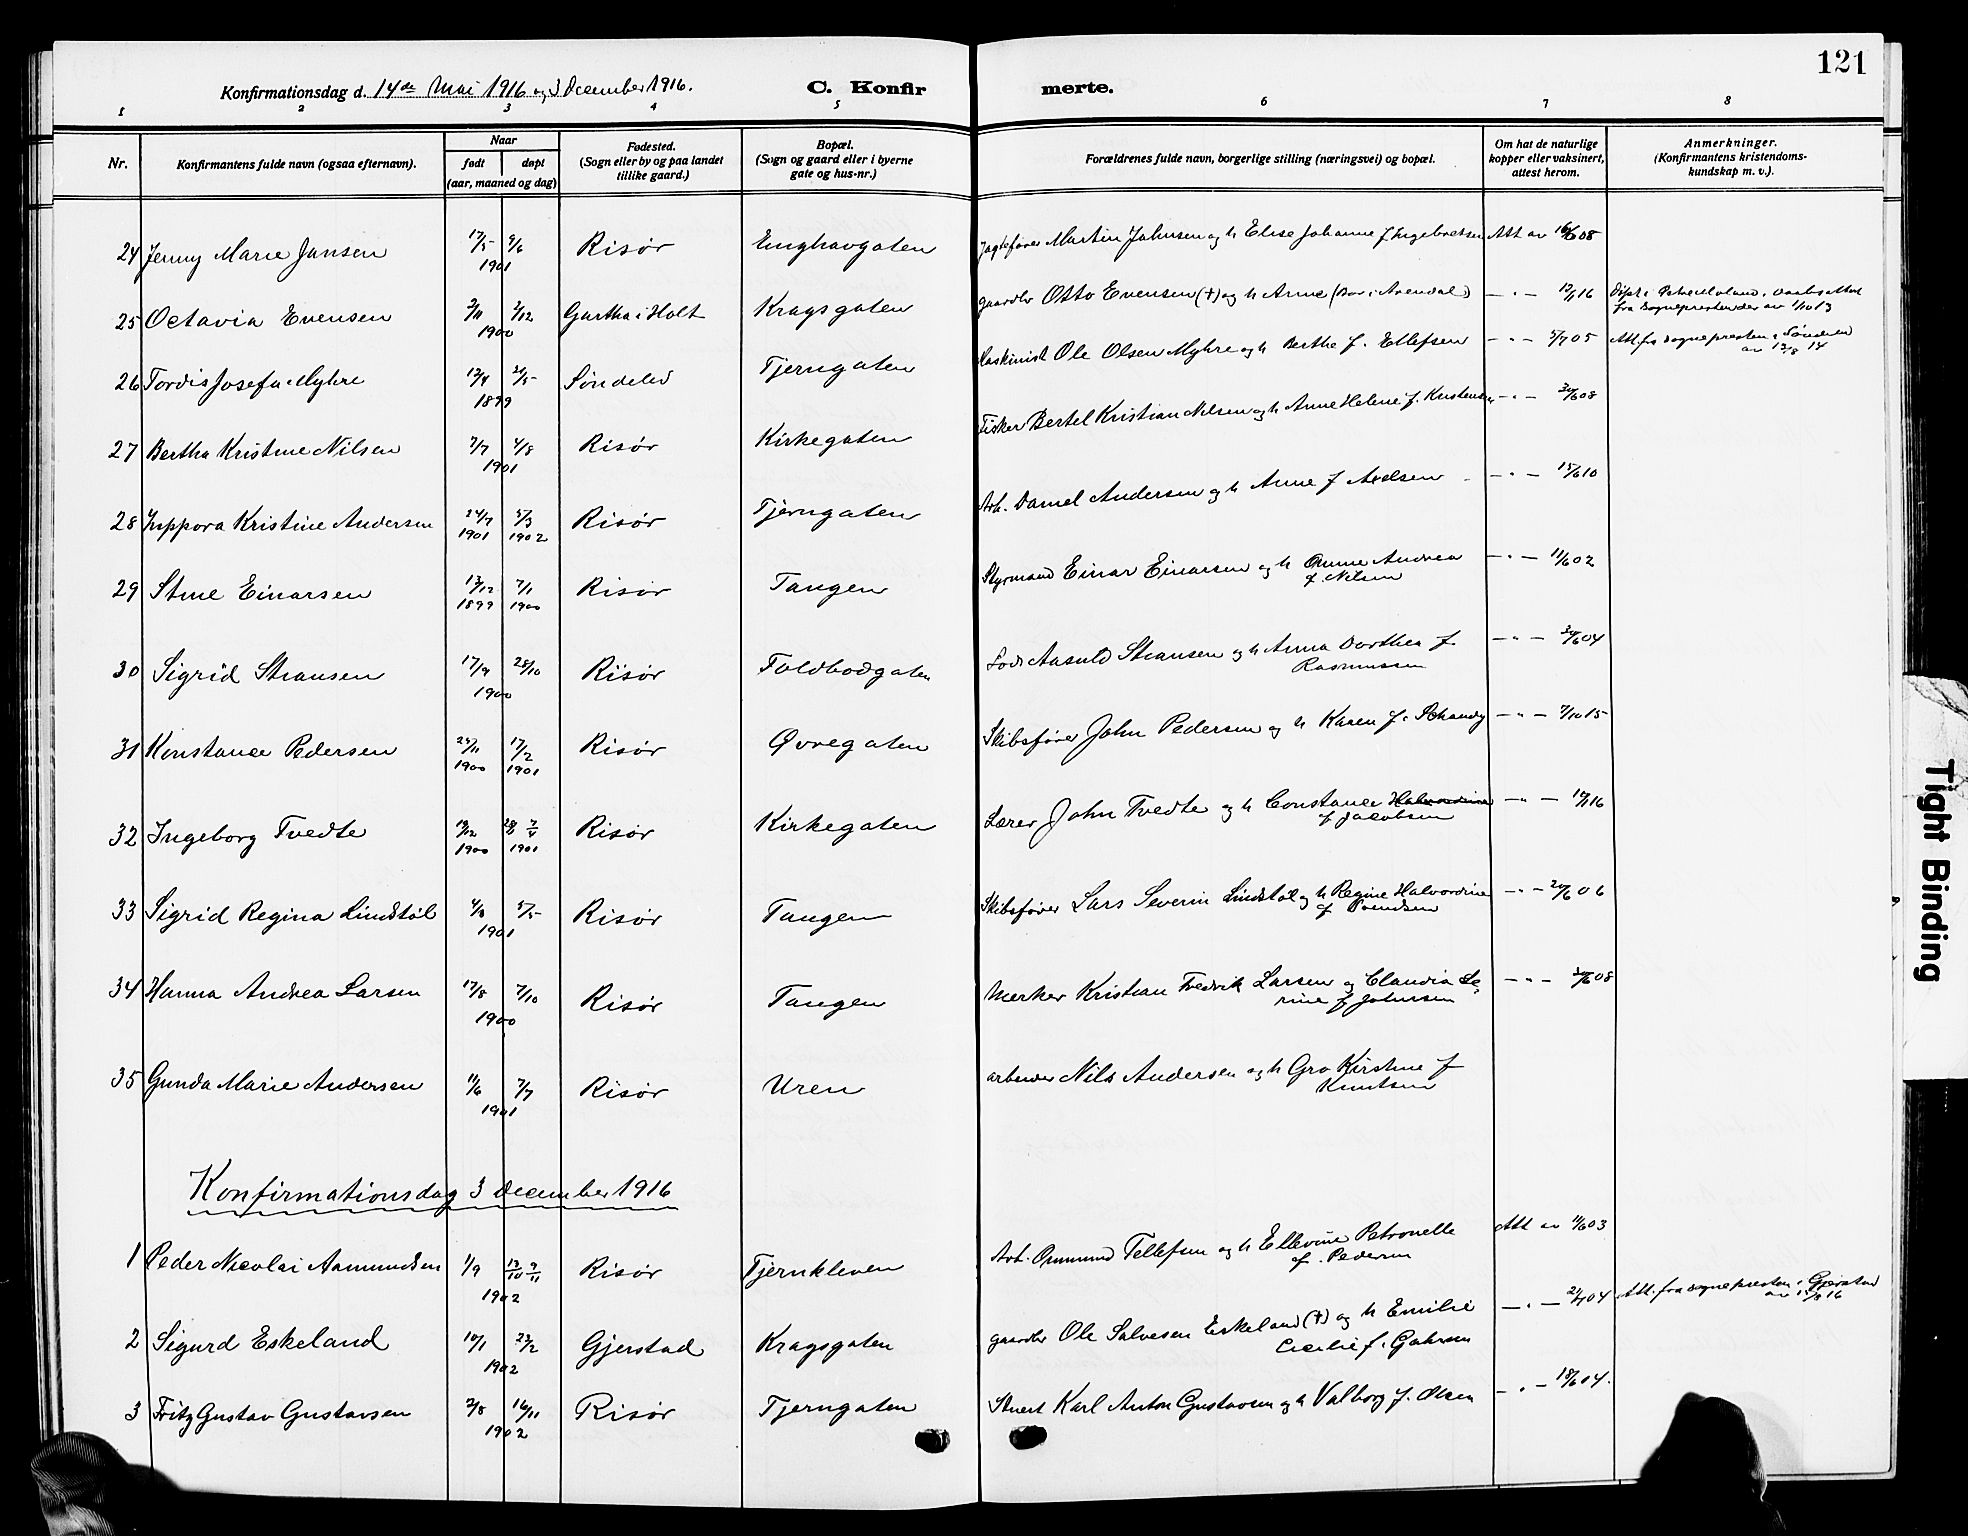 121
Konfirmationsdag d. 14de Mai 1916 og 3 December 1916. C. Konfirmerte.
1 2 3 4 5 6 7 8
Nr. Konfirmantens fulde navn (ogsaa efternavn). Naar født døpt (aar, maaned og dag) Fødested. (Sogn eller by og paa landet tillike gaard.) Bopæl. (Sogn og gaard eller i byerne gate og hus-nr.) Forældrenes fulde navn, borgerlige stilling (næringsvei) og bopæl. Om hat de naturlige kopper eller vaksinert, attest herom. Anmerkninger. (Konfirmantens kristendomskundskap m. v.).
24 Jenny Marie Jansen 17/5 9/6 1901 Risør Enghavgaten Jagtefører Martin Jahnsen og h Elise Johanne f Ingebretsen Att av 16/6 08
25 Octavia Evensen 2/11 2/12 1900 Gartha i Holt Kragsgaten gaardbr Otto Evensen (†) og h Anne (Bor i Arendal) — " — 12/1 16
fra sognepresten der av 1/10 13
26 Tordis Josefa Myhre 12/4 21/5 1899 Søndeled Tjerngaten Maskinist Ole Olsen Myhre og h Berthe f. Ellefsen — " — 5/7 05 Att. fra sognepresten i Søndeled av 12/8 14
27 Bertha Kristine Nilsen 7/7 4/8 1901 Risør Kirkegaten Fisker Bertel Kristian Nilsen og h Anne Helene f. Kristensen — " — 30/6 08
28 Kristine Andersen 24/7 1901 5/3 1902 Risør Tjerngaten Arb. Daniel Andersen og h Anne f Axelsen — " — 15/6 10
29 Stine Einarsen 13/12 1899 7/1 1900 Risør Tangen Styrmand Einar Einarsen og h Andrea
f. Nilsen — " — 11/6 02
30 Sigrid Stiansen 17/9 28/10 1900 Risør Toldbodgaten Lods Aasuld Stiansen og h Anna Dorthea f.
Rasmussen — " — 30/6 04
31 Konstance Pedersen 24/11 1900 17/2 1901 Risør Øvregaten Skibsfører John Pedersen og h Karen f. — " — 7/10 15
32 Ingeborg Tvedte 19/12 1900 7/4 1901 Risør Kirkegaten Lærer John Tvedte og h Constance Halvordine
f Jacobsen — " — 19/1 16
33 Sigrid Regina Lindstøl 4/3 5/5 1901 Risør Tangen Skibsfører Lars Severin Lindstøl og h Regine Halvordine
f Svendsen — " — 20/6 06
34 Hanna Andrea Larsen 17/8 7/10 1900 Risør Tangen Merker Kristian Fredrik Larsen og Claudia Se-
rine f Johnsen — " — 30/6 08
35 Gunda Marie Andersen 11/6 7/7 1901 Risør Uren arbeider Nils Andersen og h Gro Kirstine f
Knutsen
Konfirmationsdag 3 december 1916
1 Peder Nicolai Aamundsen 1/9 12/10 9/11 1902 Risør Tjernkleven Arb. Ommund Tellefsen og h Ellevine Petronelle
f. Pedersen Att av 11/6 03
2 Sigurd Eskeland 10/1 23/2 1902 Gjerstad Kragsgaten gaardbr Ole Salvesen Eskeland (†) og h Emilie
Cecilie f. — " — 21/7 04 Att. fra sognepresten i Gjerstad av 15/8 16
3 Fritz Gustav Gustavsen 2/8 16/11 1902 Risør Tjerngaten Stuert Karl Anton Gustavsen og h Valborg f. Olsen — " — 18/6 04.
Tight Binding